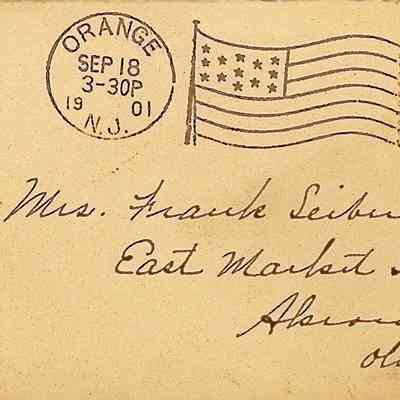 ORANGE
SEP 18
3-30P
19 01
N.J.
Mrs. Frank Seiber
East Market